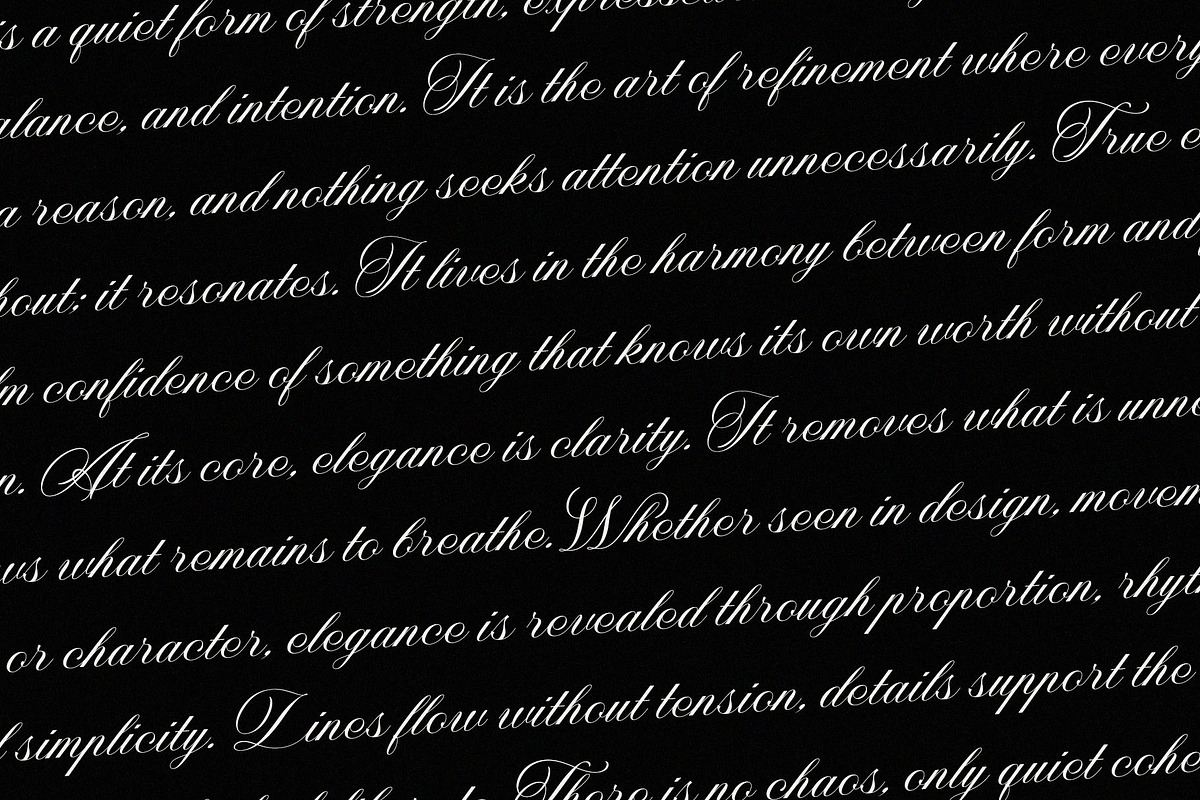 is a quiet form of strength, expressed
alance, and intention. It is the art of refinement where every
a reason, and nothing seeks attention unnecessarily. True e
hout; it resonates. It lives in the harmony between form and
lm confidence of something that knows its own worth without
n. At its core, elegance is clarity. It removes what is unne
ws what remains to breathe. Whether seen in design, movem
or character, elegance is revealed through proportion, rhyt
simplicity. Lines flow without tension, details support the
There is no chaos, only quiet cohe